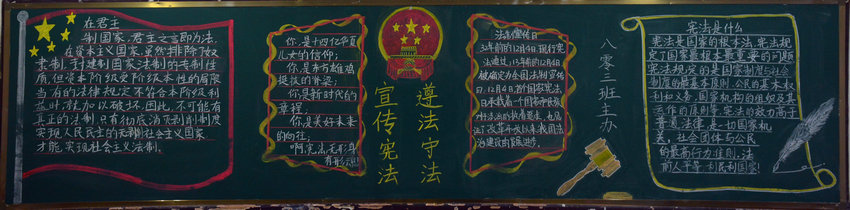 在君主
制国家,君主之言即为法,
在资本主义国家,虽然排除了奴
隶制,封建制国家法制的专制性
质,但资本阶级受阶级本性的局限
当有的法律规定不符合本阶级利
益时,就加以破坏,因此,不可能有
真正的法制,只有彻底消灭剥削制度
实现人民民主的社会主义国家
才能,实现社会主义法制。
你,是十四亿华夏
儿女的信仰;
你,是东方雄鸡
挺拔的脊梁;
你,是新时代的
章程,
你,是美好未来
的向往。
啊,宪法,无形
有形
宣传宪法
遵法守法
法制宣传日
32年前的12月4日,现行宪
法通过,13年前的12月4日
被确定为全国法制宣传
日,12月4日,
八零三班主办
宪法是什么
宪法是国家的根本法,宪法规
定了国家最根本最重要的问题
宪法规定的是国家制度与社会
制度的最基本原则,公民的基本权
利和义务,国家机构的组织及其
运作的原则等,宪法的效力高于
普通法律,是一切国家机
关,社会团体与公民
的最高行为准则,法
前人平等